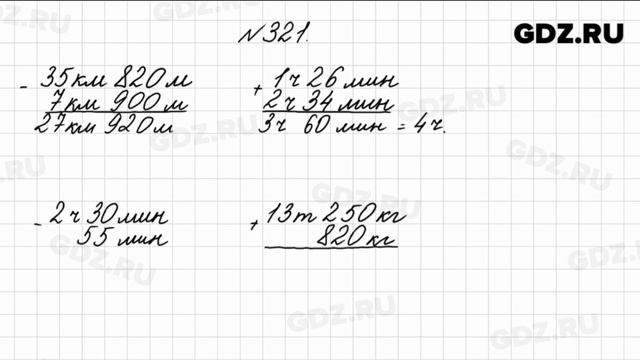 №321.
GDZ.RU
- 35км 820м
7км 900м
27км 920м
+ 1ч 26 мин
2ч 34 мин
3ч 60 мин = 4ч.
- 2ч 30мин
55 мин
+ 13т 250кг
820кг